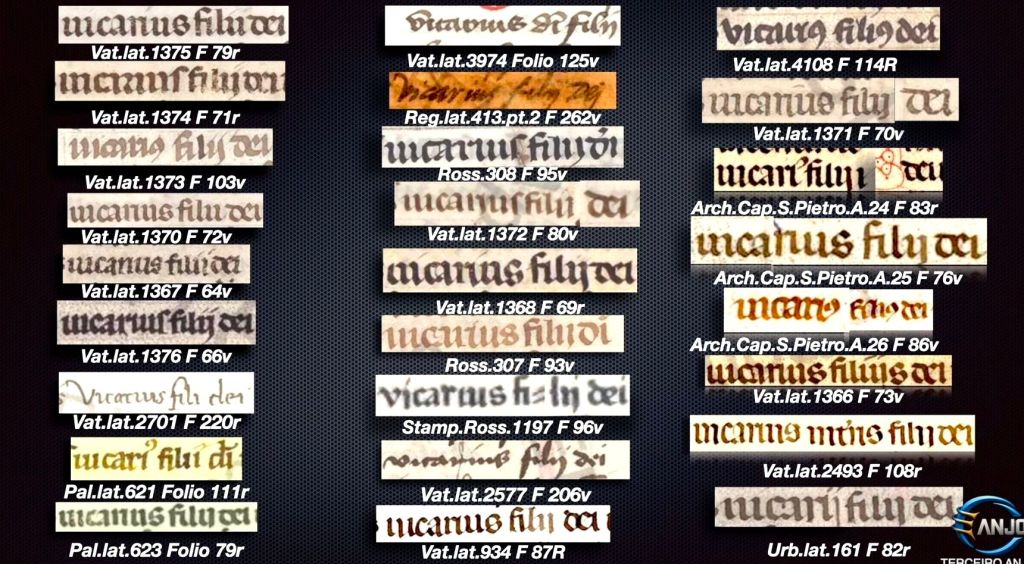 uicarius filii dei
Vat.lat.1375 F 79r
uicarius filii dei
Vat.lat.1374 F 71r
uicariꝰ filij dei
Vat.lat.1373 F 103v
uicarius filii dei
Vat.lat.1370 F 72v
uicarius filii dei
Vat.lat.1367 F 64v
uicarius filij dei
Vat.lat.1376 F 66v
Vicarius fili dei
Vat.lat.2701 F 220r
uicariꝰ filii
Pal.lat.621 Folio 111r
uicarius filij dei
Pal.lat.623 Folio 79r
dī filij
Vat.lat.3974 Folio 125v
Vicarius filij Dej
Reg.lat.413.pt.2 F 262v
uicarius filii dī
Ross.308 F 95v
uicarius filii dei
Vat.lat.1372 F 80v
uicarius filij dei
Vat.lat.1368 F 69r
uicarius filii dī
Ross.307 F 93v
vicarius fi=lij dei
Stamp.Ross.1197 F 96v
vicarius filij dei
Vat.lat.2577 F 206v
uicarius filii dei
Vat.lat.934 F 87R
vicariꝰ filiꝰ dei
Vat.lat.4108 F 114R
uicarius filij dei
Vat.lat.1371 F 70v
filij dei
Arch.Cap.S.Pietro.A.24 F 83r
uicarius filij dei
Arch.Cap.S.Pietro.A.25 F 76v
uicariꝰ dei
Arch.Cap.S.Pietro.A.26 F 86v
uicarius filijs dei
Vat.lat.1366 F 73v
uicarius filij dei
Vat.lat.2493 F 108r
uicarij filij dei
Urb.lat.161 F 82r
ANJO
TERCEIRO AN